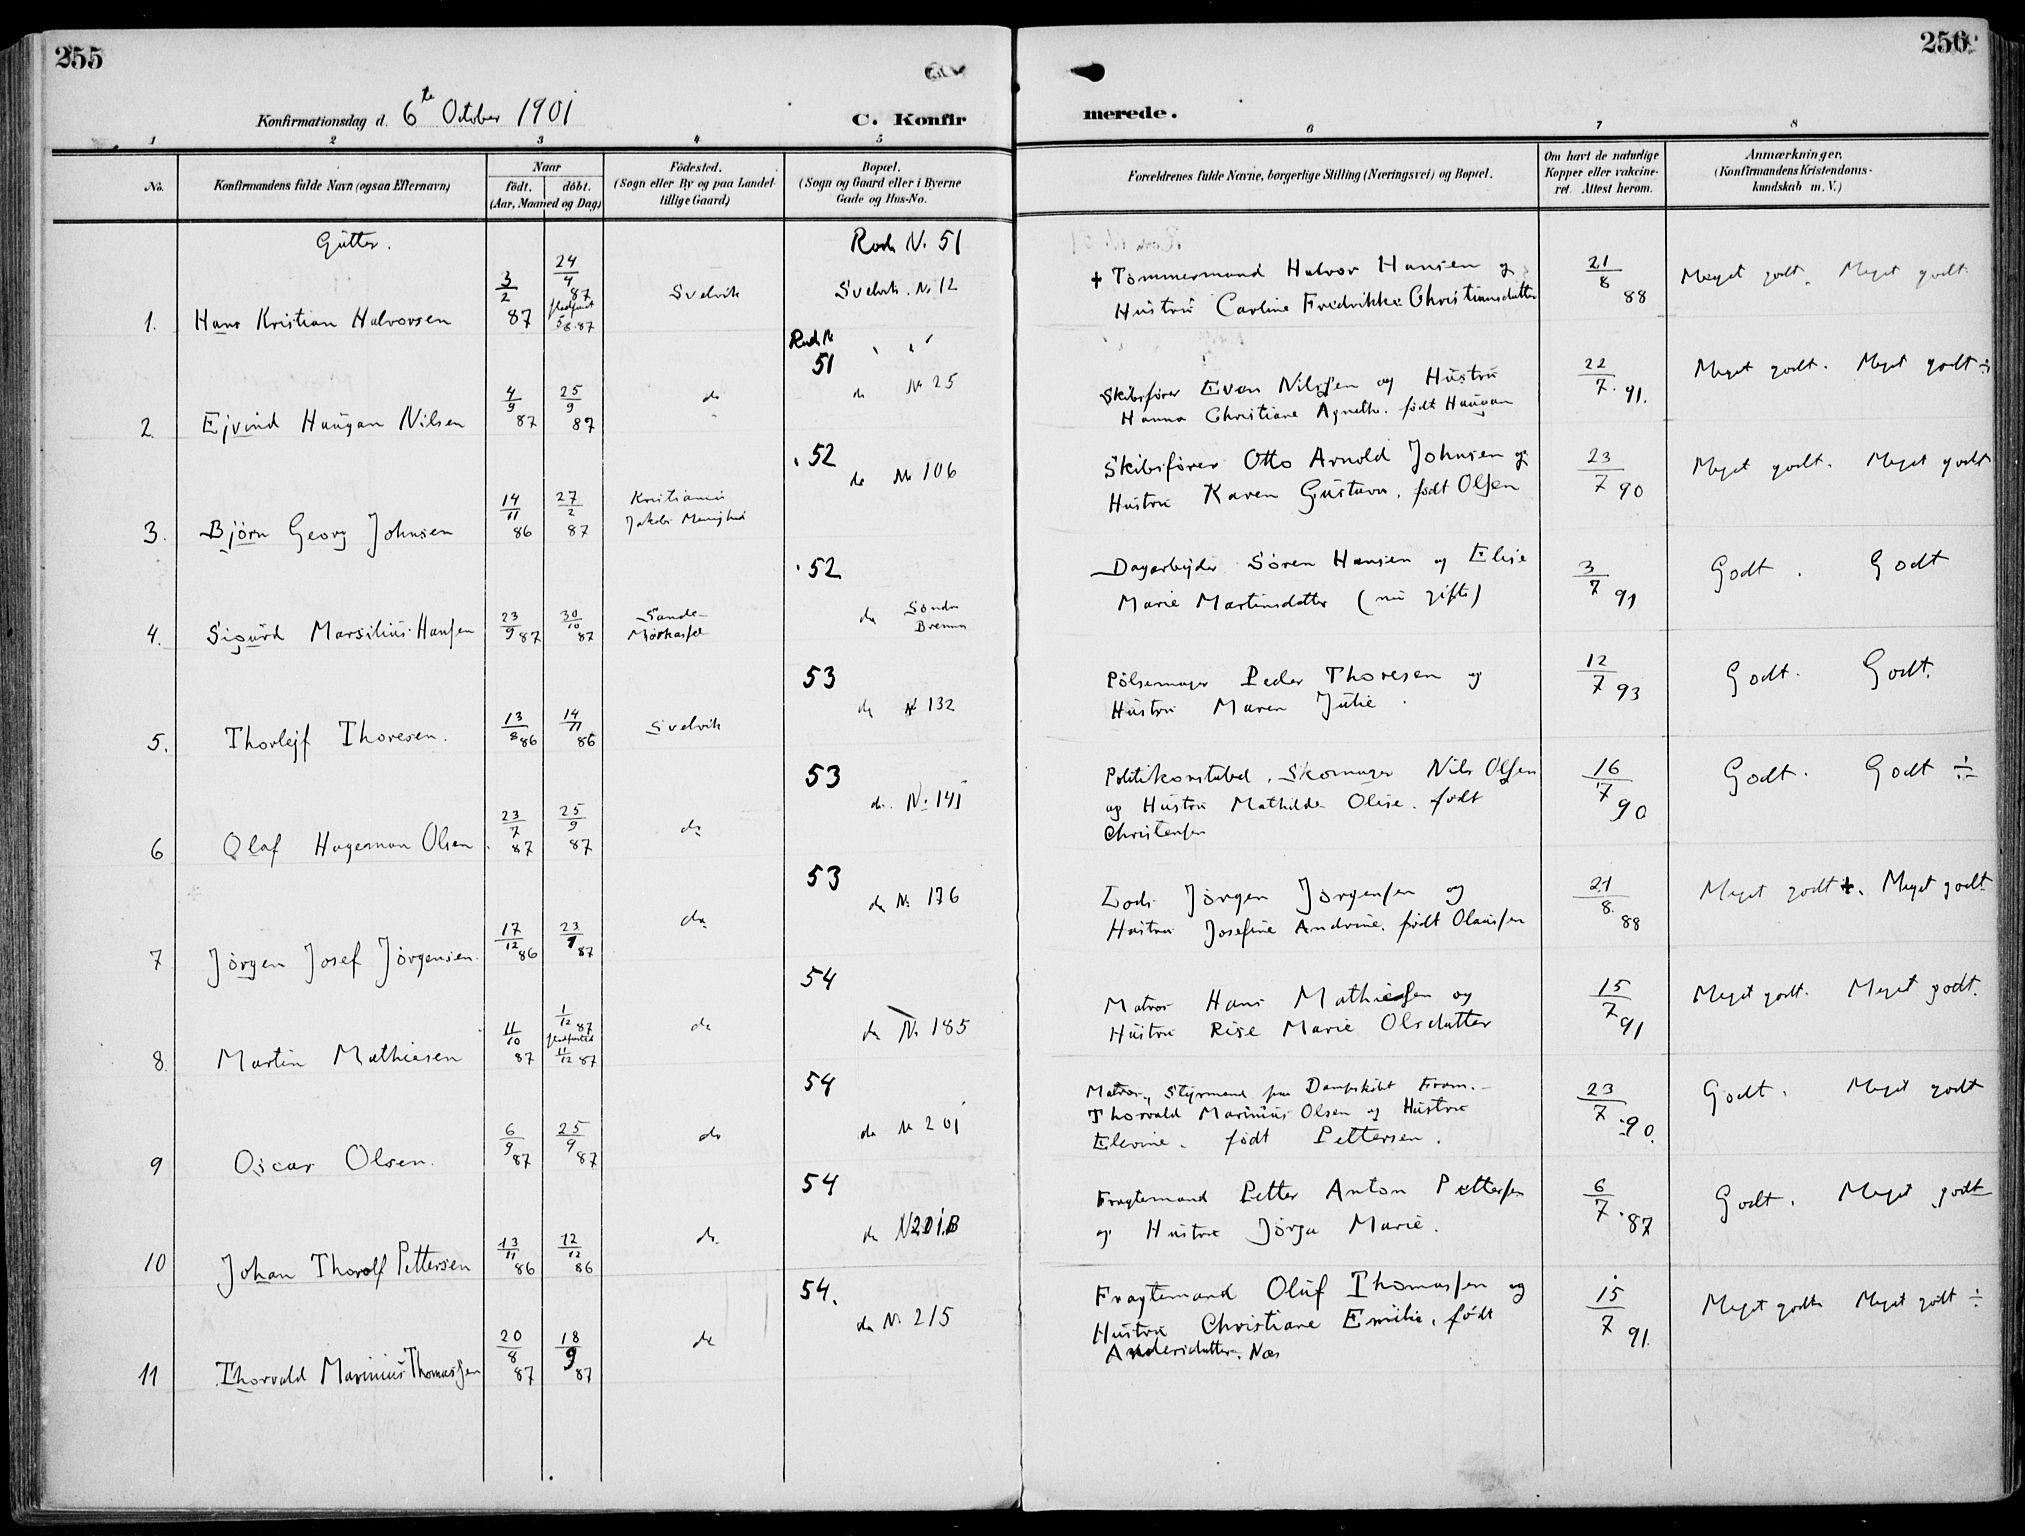 255
256
Konfirmationsdag d. 6te October 1901
C. Konfirmerede.
1 2 3 4 5 6 7 8
No.
Konfirmandens fulde Navn (ogsaa Efternavn)
Naar
født. døbt.
(Aar, Maaned og Dag)
Fødested.
(Sogn eller By og paa Landet tillige Gaard)
Bopæl.
(Sogn og Gaard eller i Byerne Gade og Hus-No.
Forældrenes fulde Navne, borgerlige Stilling (Næringsvei) og Bopæl.
Om havt de naturlige Kopper eller vakcineret. Attest herom.
Anmærkninger.
(Konfirmandens Kristendomskundskab m. V.)
Gutter.
Rode N. 51
1. Hans Kristian Halvorsen 3/2 87 24/4 87 Svelvik Svelvik. No 12
+ Tømmermand Halvor Hansen og
Hustru Caroline Fredrikke Christiansdatter
21/8 88 Meget godt. Meget godt.
Rode N 51
2. Ejvind Haugan Nilsen 4/9 87 25/9 87 do do No 25
Skibsfører Even Nilssen og Hustru
Hanna Christiane Agnethe. født Haugan
22/7 91. Meget godt. Meget godt ÷
52
3. Bjørn Georg Johnsen 14/11 86 27/2 87 Kristiania Jakobs Menighed do No 106
Skibsfører Otto Arnold Johnsen og
Hustru Karen Gustava. født Olsen
23/7 90 Meget godt. Meget godt
52
4. Sigurd Marsilius Hansen 23/9 87 30/10 87 Sande do Søndre
Dagarbejder Søren Hansen og Elise
Marie Martinsdatter (nu gifte)
3/7 91 Godt. Godt
53
5. Thorlejf Thoresen. 13/8 86 14/11 86 Svelvik do No 132
Pølsemager Peder Thoresen og
Hustru Maren Julie.
12/7 93 Godt. Godt.
53
6 Olaf Hagerman Olsen 23/7 87 25/9 87 do do. No 141
Politikonstabel, Skomager Nils Olsen
og Hustru Mathilde Olise. født
Christensen
16/7 90 Godt. Godt ÷
53
7 Jørgen Josef Jørgensen. 17/12 86 23/1 87 do do No 176
Lods Jørgen Jørgensen og
Hustru Josefine Andrine. født Olaussen
21/8. 88 Meget godt +. Meget godt
54
8 Martin Mathiesen 11/10 87 1/12 87 11/12 87 do do No 185
Matros Hans Mathiesen og
Hustru Rise Marie Olsdatter
15/7 91 Meget godt. Meget godt.
54
9 Oscar Olsen. 6/9 87 25/9 87 do do No 201
Matros, Styrmand paa Dampskibet Fram.
Thorvald Marinius Olsen og Hustru
Elevine. født Pettersen.
23/7 90. Godt. Meget godt
54
10 Johan Thorolf Pettersen 13/11 86 12/12 86 do. do N 201.B
Fragtemand Petter Anton Pettersen
og Hustru Jørga Marie.
6/7 87 Godt. Meget godt
54.
11 Thorvald Marinius Thomassen 20/8 87 18/9 87 do do No 215
Fragtemand Oluf Thomassen og
Hustru Christiane Emilie. født
Andersdatter. Næs
15/7 91. Meget godt. Meget godt ÷